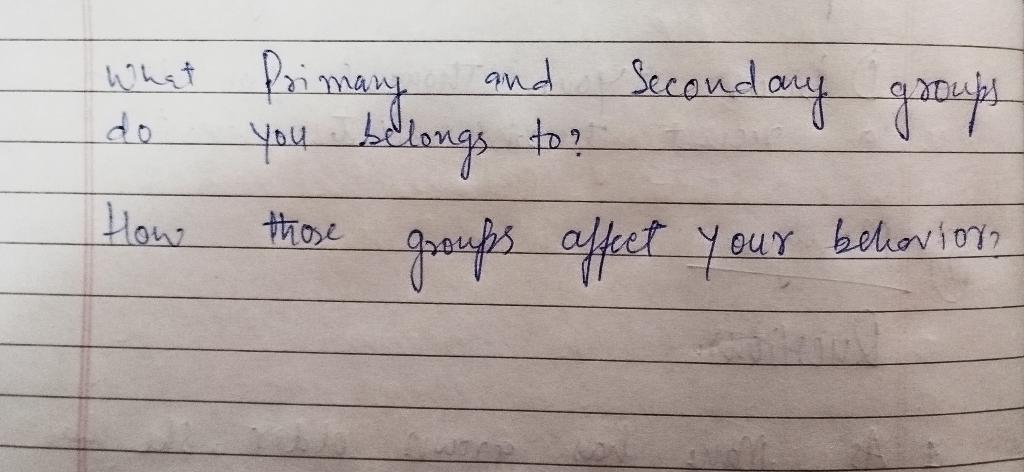 What Primary and Secondary groups
do you belongs to?
How those groups affect your behavior?